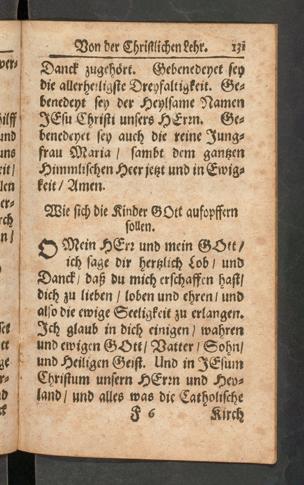 Von der Christlichen Lehr. 131
Danck zugehört. Gebenedeyet sey
die allerheiligste Dreyfaltigkeit. Ge-
benedeyt sey der Heylsame Namen
JEsu Christi unsers HErrn. Ge-
benedeyet sey auch die reine Jung-
frau Maria / sambt dem gantzen
Himmlischen Heer jetzt und in Ewig-
keit / Amen.
Wie sich die Kinder GOtt aufopffern
sollen.
O Mein HErr und mein GOtt /
ich sage dir hertzlich Lob / und
Danck / daß du mich erschaffen hast /
dich zu lieben / loben und ehren / und
also die ewige Seeligkeit zu erlangen.
Ich glaub in dich einigen / wahren
und ewigen GOtt / Vatter / Sohn /
und Heiligen Geist. Und in JEsum
Christum unsern HErrn und Hey-
land / und alles was die Catholische
F 6 Kirch